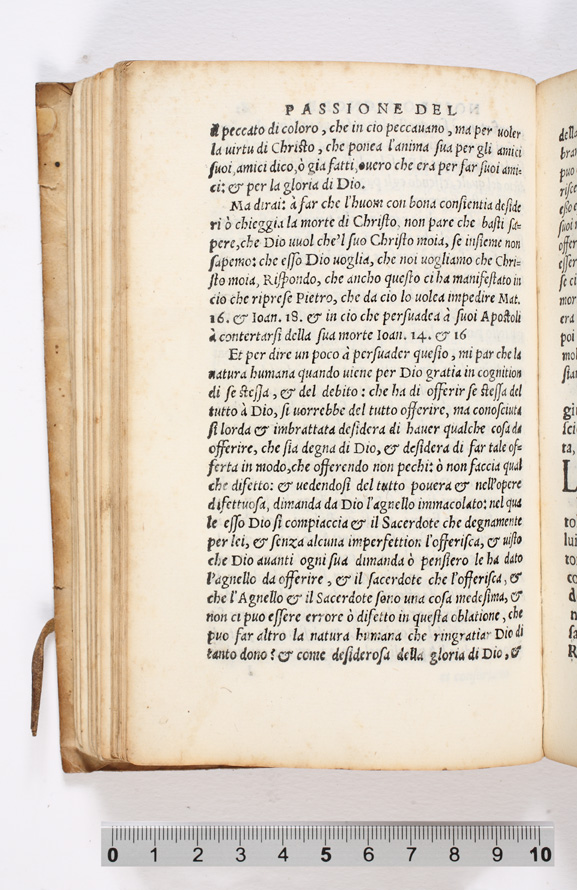 PASSIONE DEL
il peccato di coloro, che in cio peccauano, ma per uoler
la uirtu di Christo, che ponea l'anima sua per gli amici
suoi, amici dico, ò gia fatti, ouero che era per far suoi ami-
ci: & per la gloria di Dio.
Ma dirai: à far che l'huom con bona consientia deside
ri ò chieggia la morte di Christo, non pare che basti sa-
pere, che Dio uuol che'l suo Christo moia, se insieme non
sapemo: che esso Dio uoglia, che noi uogliamo che Chri-
sto moia, Rispondo, che ancho questo ci ha manifestato in
cio che riprese Pietro, che da cio lo uolea impedire Mat.
16. & Ioan. 18. & in cio che persuadea à suoi Apostoli
à contertarsi della sua morte Ioan. 14. & 16
Et per dire un poco à persuader questo, mi par che la
natura humana quando uiene per Dio gratia in cognition
di se stessa, & del debito: che ha di offerir se stessa del
tutto à Dio, si uorrebbe del tutto offerire, ma conosciuta
si lorda & imbrattata desidera di hauer qualche cosa da
offerire, che sia degna di Dio, & desidera di far tale of-
ferta in modo, che offerendo non pechi: ò non faccia qual
che difetto: & uedendosi del tutto pouera & nell'opere
difettuosa, dimanda da Dio l'agnello immacolato: nel qua
le esso Dio si compiaccia & il Sacerdote che degnamente
per lei, & senza alcuna imperfettion l'offerisca, & uisto
che Dio auanti ogni sua dimanda ò pensiero le ha dato
l'agnello da offerire, & il sacerdote che l'offerisca, &
che l'Agnello & il Sacerdote sono una cosa medesima, &
non ci puo essere errore ò difetto in questa oblatione, che
puo far altro la natura humana che ringratiar Dio di
tanto dono? & come desiderosa della gloria di Dio, &
0 1 2 3 4 5 6 7 8 9 10